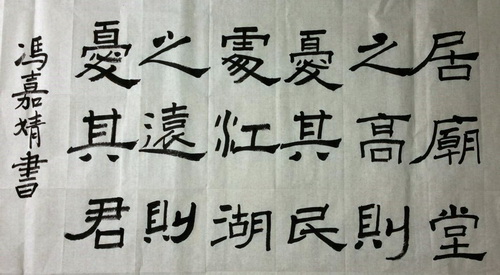 居廟堂
之高則
憂其民
處江湖
之遠則
憂其君
馮嘉婧書